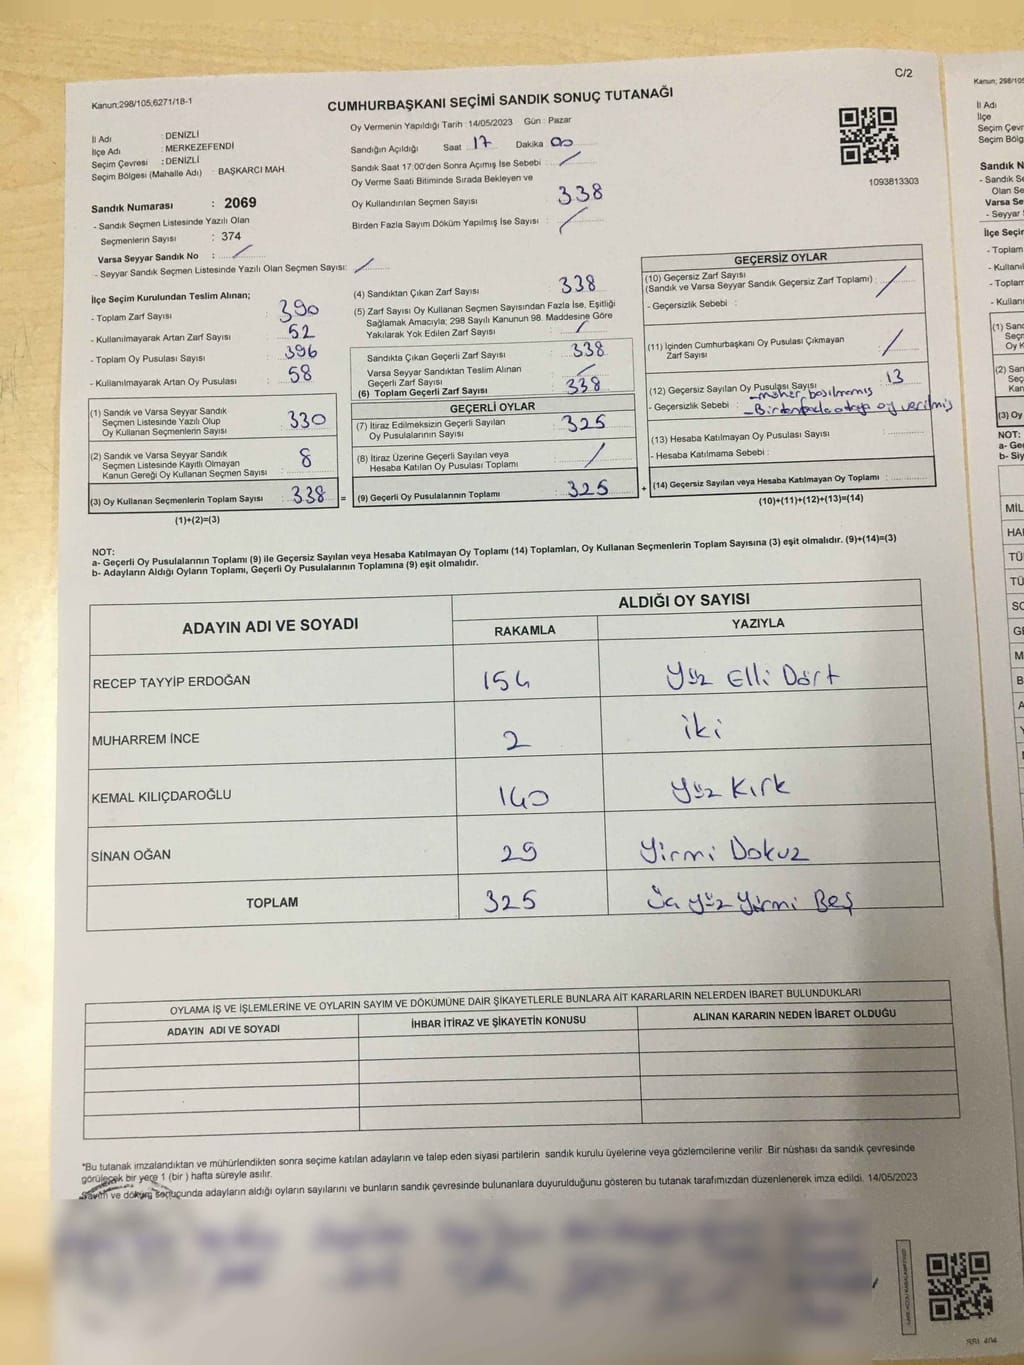 C/2
Kanun;298/105;6271/18-1
CUMHURBAŞKANI SEÇİMİ SANDIK SONUÇ TUTANAĞI
İl Adı : DENİZLİ
İlçe Adı : MERKEZEFENDİ
Seçim Çevresi : DENİZLİ
Seçim Bölgesi (Mahalle Adı) : BAŞKARCI MAH.
Sandık Numarası : 2069
- Sandık Seçmen Listesinde Yazılı Olan
Seçmenlerin Sayısı : 374
Varsa Seyyar Sandık No : /
- Seyyar Sandık Seçmen Listesinde Yazılı Olan Seçmen Sayısı: /
Oy Vermenin Yapıldığı Tarih : 14/05/2023 Gün : Pazar
Sandığın Açıldığı Saat 17 Dakika 00
Sandık Saat 17:00'den Sonra Açımış İse Sebebi : /
Oy Verme Saati Bitiminde Sırada Bekleyen ve
Oy Kullandırılan Seçmen Sayısı : 338
Birden Fazla Sayım Döküm Yapılmış İse Sayısı : /
1093813303
İlçe Seçim Kurulundan Teslim Alınan;
- Toplam Zarf Sayısı : 390
- Kullanılmayarak Artan Zarf Sayısı : 52
- Toplam Oy Pusulası Sayısı : 396
- Kullanılmayarak Artan Oy Pusulası : 58
(1) Sandık ve Varsa Seyyar Sandık
Seçmen Listesinde Yazılı Olup
Oy Kullanan Seçmenlerin Sayısı : 330
(2) Sandık ve Varsa Seyyar Sandık
Seçmen Listesinde Kayıtlı Olmayan
Kanun Gereği Oy Kullanan Seçmen Sayısı : 8
(3) Oy Kullanan Seçmenlerin Toplam Sayısı : 338 =
(1)+(2)=(3)
(4) Sandıktan Çıkan Zarf Sayısı : 338
(5) Zarf Sayısı Oy Kullanan Seçmen Sayısından Fazla İse, Eşitliği
Sağlamak Amacıyla; 298 Sayılı Kanunun 98. Maddesine Göre
Yakılarak Yok Edilen Zarf Sayısı : /
Sandıkta Çıkan Geçerli Zarf Sayısı : 338
Varsa Seyyar Sandıktan Teslim Alınan
Geçerli Zarf Sayısı : /
(6) Toplam Geçerli Zarf Sayısı : 338
GEÇERLİ OYLAR
(7) İtiraz Edilmeksizin Geçerli Sayılan
Oy Pusulalarının Sayısı : 325
(8) İtiraz Üzerine Geçerli Sayılan veya
Hesaba Katılan Oy Pusulası Toplamı : /
(9) Geçerli Oy Pusulalarının Toplamı : 325 +
GEÇERSİZ OYLAR
(10) Geçersiz Zarf Sayısı
(Sandık ve Varsa Seyyar Sandık Geçersiz Zarf Toplamı) : /
- Geçersizlik Sebebi :
(11) İçinden Cumhurbaşkanı Oy Pusulası Çıkmayan
Zarf Sayısı : /
(12) Geçersiz Sayılan Oy Pusulası Sayısı : 13
- Geçersizlik Sebebi : - mühür basılmamış
- Birden fazla adaya oy verilmiş
(13) Hesaba Katılmayan Oy Pusulası Sayısı :
- Hesaba Katılmama Sebebi :
(14) Geçersiz Sayılan veya Hesaba Katılmayan Oy Toplamı :
(10)+(11)+(12)+(13)=(14)
NOT:
a- Geçerli Oy Pusulalarının Toplamı (9) ile Geçersiz Sayılan veya Hesaba Katılmayan Oy Toplamı (14) Toplamları, Oy Kullanan Seçmenlerin Toplam Sayısına (3) eşit olmalıdır. (9)+(14)=(3)
b- Adayların Aldığı Oyların Toplamı, Geçerli Oy Pusulalarının Toplamına (9) eşit olmalıdır.
ADAYIN ADI VE SOYADI
ALDIĞI OY SAYISI
RAKAMLA YAZIYLA
RECEP TAYYİP ERDOĞAN 154 Yüz Elli Dört
MUHARREM İNCE 2 iki
KEMAL KILIÇDAROĞLU 140 Yüz Kırk
SİNAN OĞAN 29 Yirmi Dokuz
TOPLAM 325 Üç Yüz Yirmi Beş
OYLAMA İŞ VE İŞLEMLERİNE VE OYLARIN SAYIM VE DÖKÜMÜNE DAİR ŞİKAYETLERLE BUNLARA AİT KARARLARIN NELERDEN İBARET BULUNDUKLARI
ADAYIN ADI VE SOYADI İHBAR İTİRAZ VE ŞİKAYETİN KONUSU ALINAN KARARIN NEDEN İBARET OLDUĞU
*Bu tutanak imzalandıktan ve mühürlendikten sonra seçime katılan adayların ve talep eden siyasi partilerin sandık kurulu üyelerine veya gözlemcilerine verilir. Bir nüshası da sandık çevresinde
görülecek bir yere 1 (bir ) hafta süreyle asılır.
Sayım ve döküm sonucunda adayların aldığı oyların sayılarını ve bunların sandık çevresinde bulunanlara duyurulduğunu gösteren bu tutanak tarafımızdan düzenlenerek imza edildi. 14/05/2023
Kanun; 298/105
İl Adı
İlçe
Seçim Çevr
Seçim Bölg
Sandık N
- Sandık Se
Olan Se
Varsa Se
- Seyyar
İlçe Seçir
- Toplam
- Kullanıl
- Toplam
- Kullanı
(1) Sand
Seçr
Oy K
(2) San
Seç
Kan
(3) Oy
NOT:
a- Geç
b- Siy
MİL
HA
TÜ
TÜ
SC
GE
M
B
A
Y